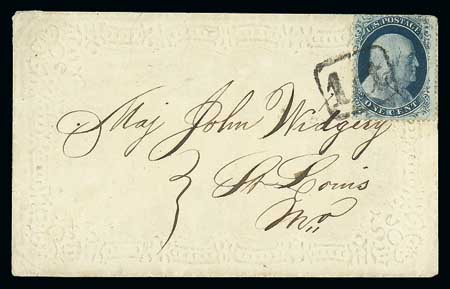 U.S. POSTAGE
1
ONE CENT
Maj John Widgery
St Louis
Mo